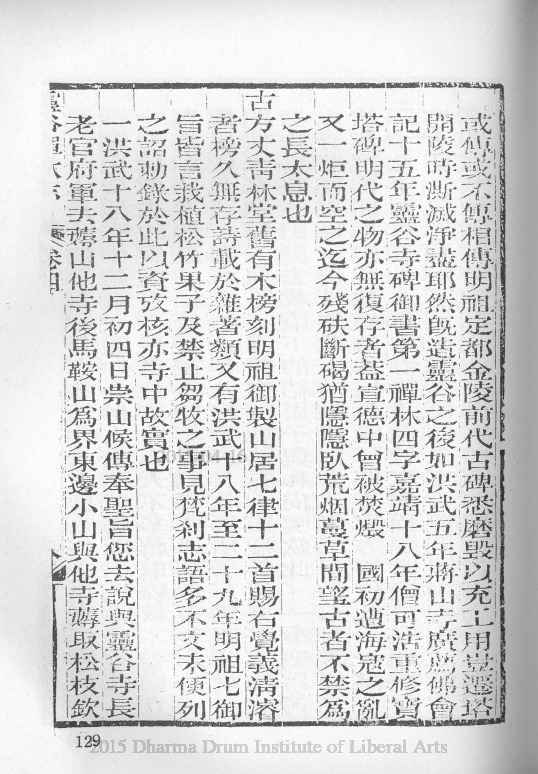 或傳或不傳相傳明祖定都金陵前代古碑悉磨毀以充工用豈遷塔
開陵時澌滅淨盡耶然旣造靈谷之後如洪武五年蔣山寺廣薦佛會
記十五年靈谷寺碑御書第一禪林四字嘉靖十八年僧可浩重修寶
塔碑明代之物亦無復存者葢宣德中曾被焚燬 國初遭海寇之亂
又一炬而空之迄今殘砆斷碣猶隱隱臥荒烟蔓草間望古者不禁爲
之長太息也
古方丈靑林堂舊有木榜刻明祖御製山居七律十二首賜右覺義淸濬
者榜久無存詩載於雜著類又有洪武十八年至二十九年明祖七御
旨皆言栽植松竹果子及禁止芻牧之事見梵刹志語多不文未便列
之詔勅錄於此以資攷核亦寺中故實也
一洪武十八年十二月初四日崇山候傳奉聖旨您去說與靈谷寺長
老官府軍去山他寺後馬鞍山爲界東邊小山與他寺取松枝欽
靈谷禪林志 卷四
129
2015 Dharma Drum Institute of Liberal Arts